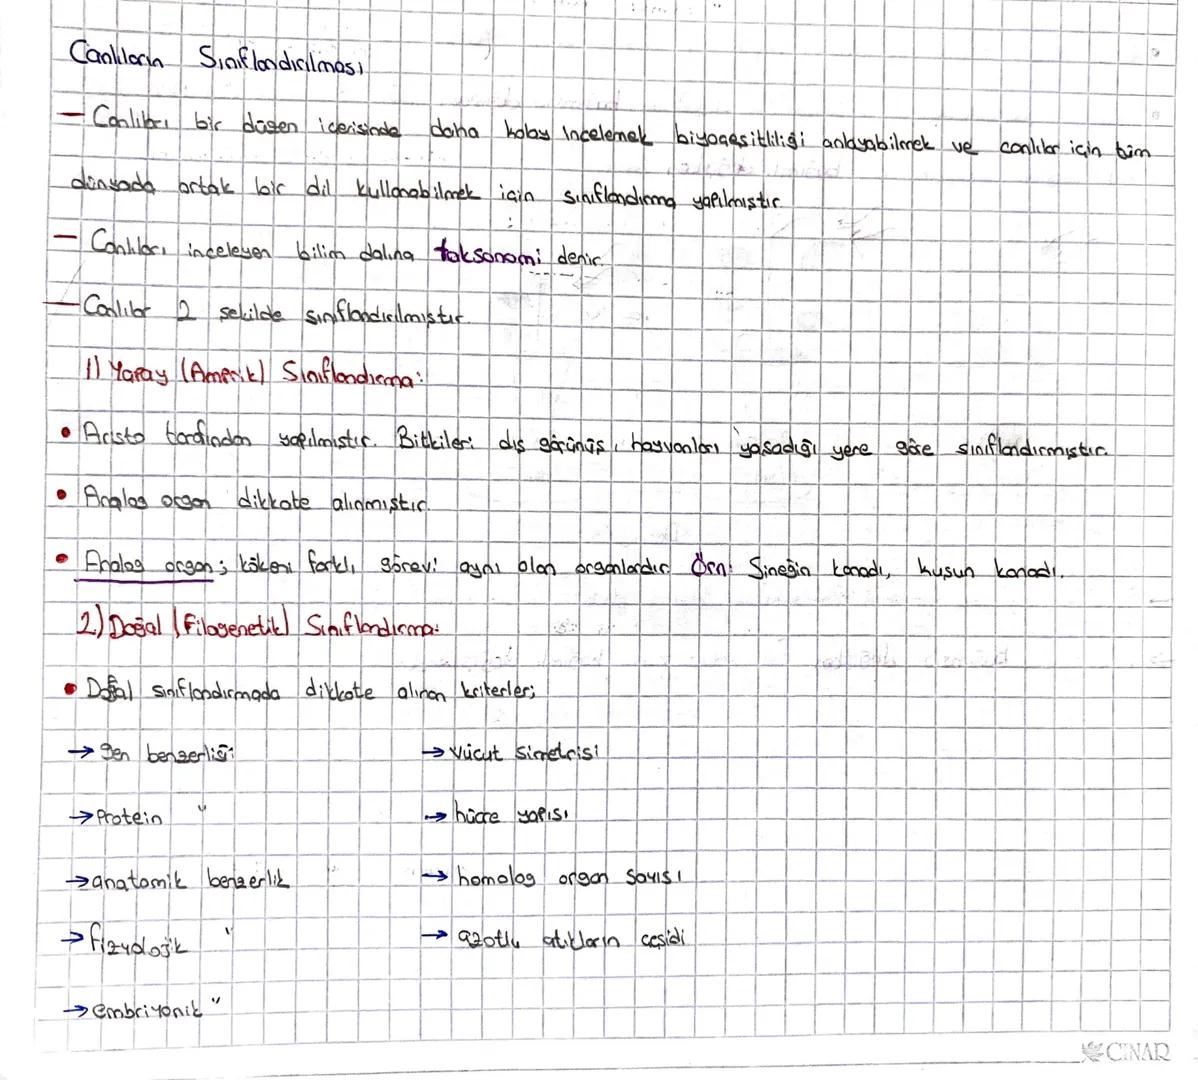 Canlıların Sınıflandırılması
— Canlıları bir düzen içerisinde daha kolay incelemek biyoçeşitliliği anlayabilmek ve canlılar için tüm
dünyada ortak bir dil kullanabilmek için sınıflandırma yapılmıştır
— Canlıları inceleyen bilim dalına taksonomi denir.
— Canlılar 2 şekilde sınıflandırılmıştır.
1) Yapay (Amprik) Sınıflandırma:
• Aristo tarafından yapılmıştır. Bitkileri dış görünüş, hayvanları yaşadığı yere göre sınıflandırmıştır.
• Analog organ dikkate alınmıştır.
• Analog organ; kökeni farklı, görevi aynı olan organlardır Örn: Sineğin kanadı, kuşun kanadı.
2) Doğal (Filogenetik) Sınıflandırma:
• Doğal sınıflandırmada dikkate alınan kriterler;
→ gen benzerliği → vücut simetrisi
→ Protein " → hücre yapısı
→ anatomik benzerlik → homolog organ sayısı
→ fizyolojik " → azotlu atıkların çeşidi
→ embriyonik "
ÇINAR